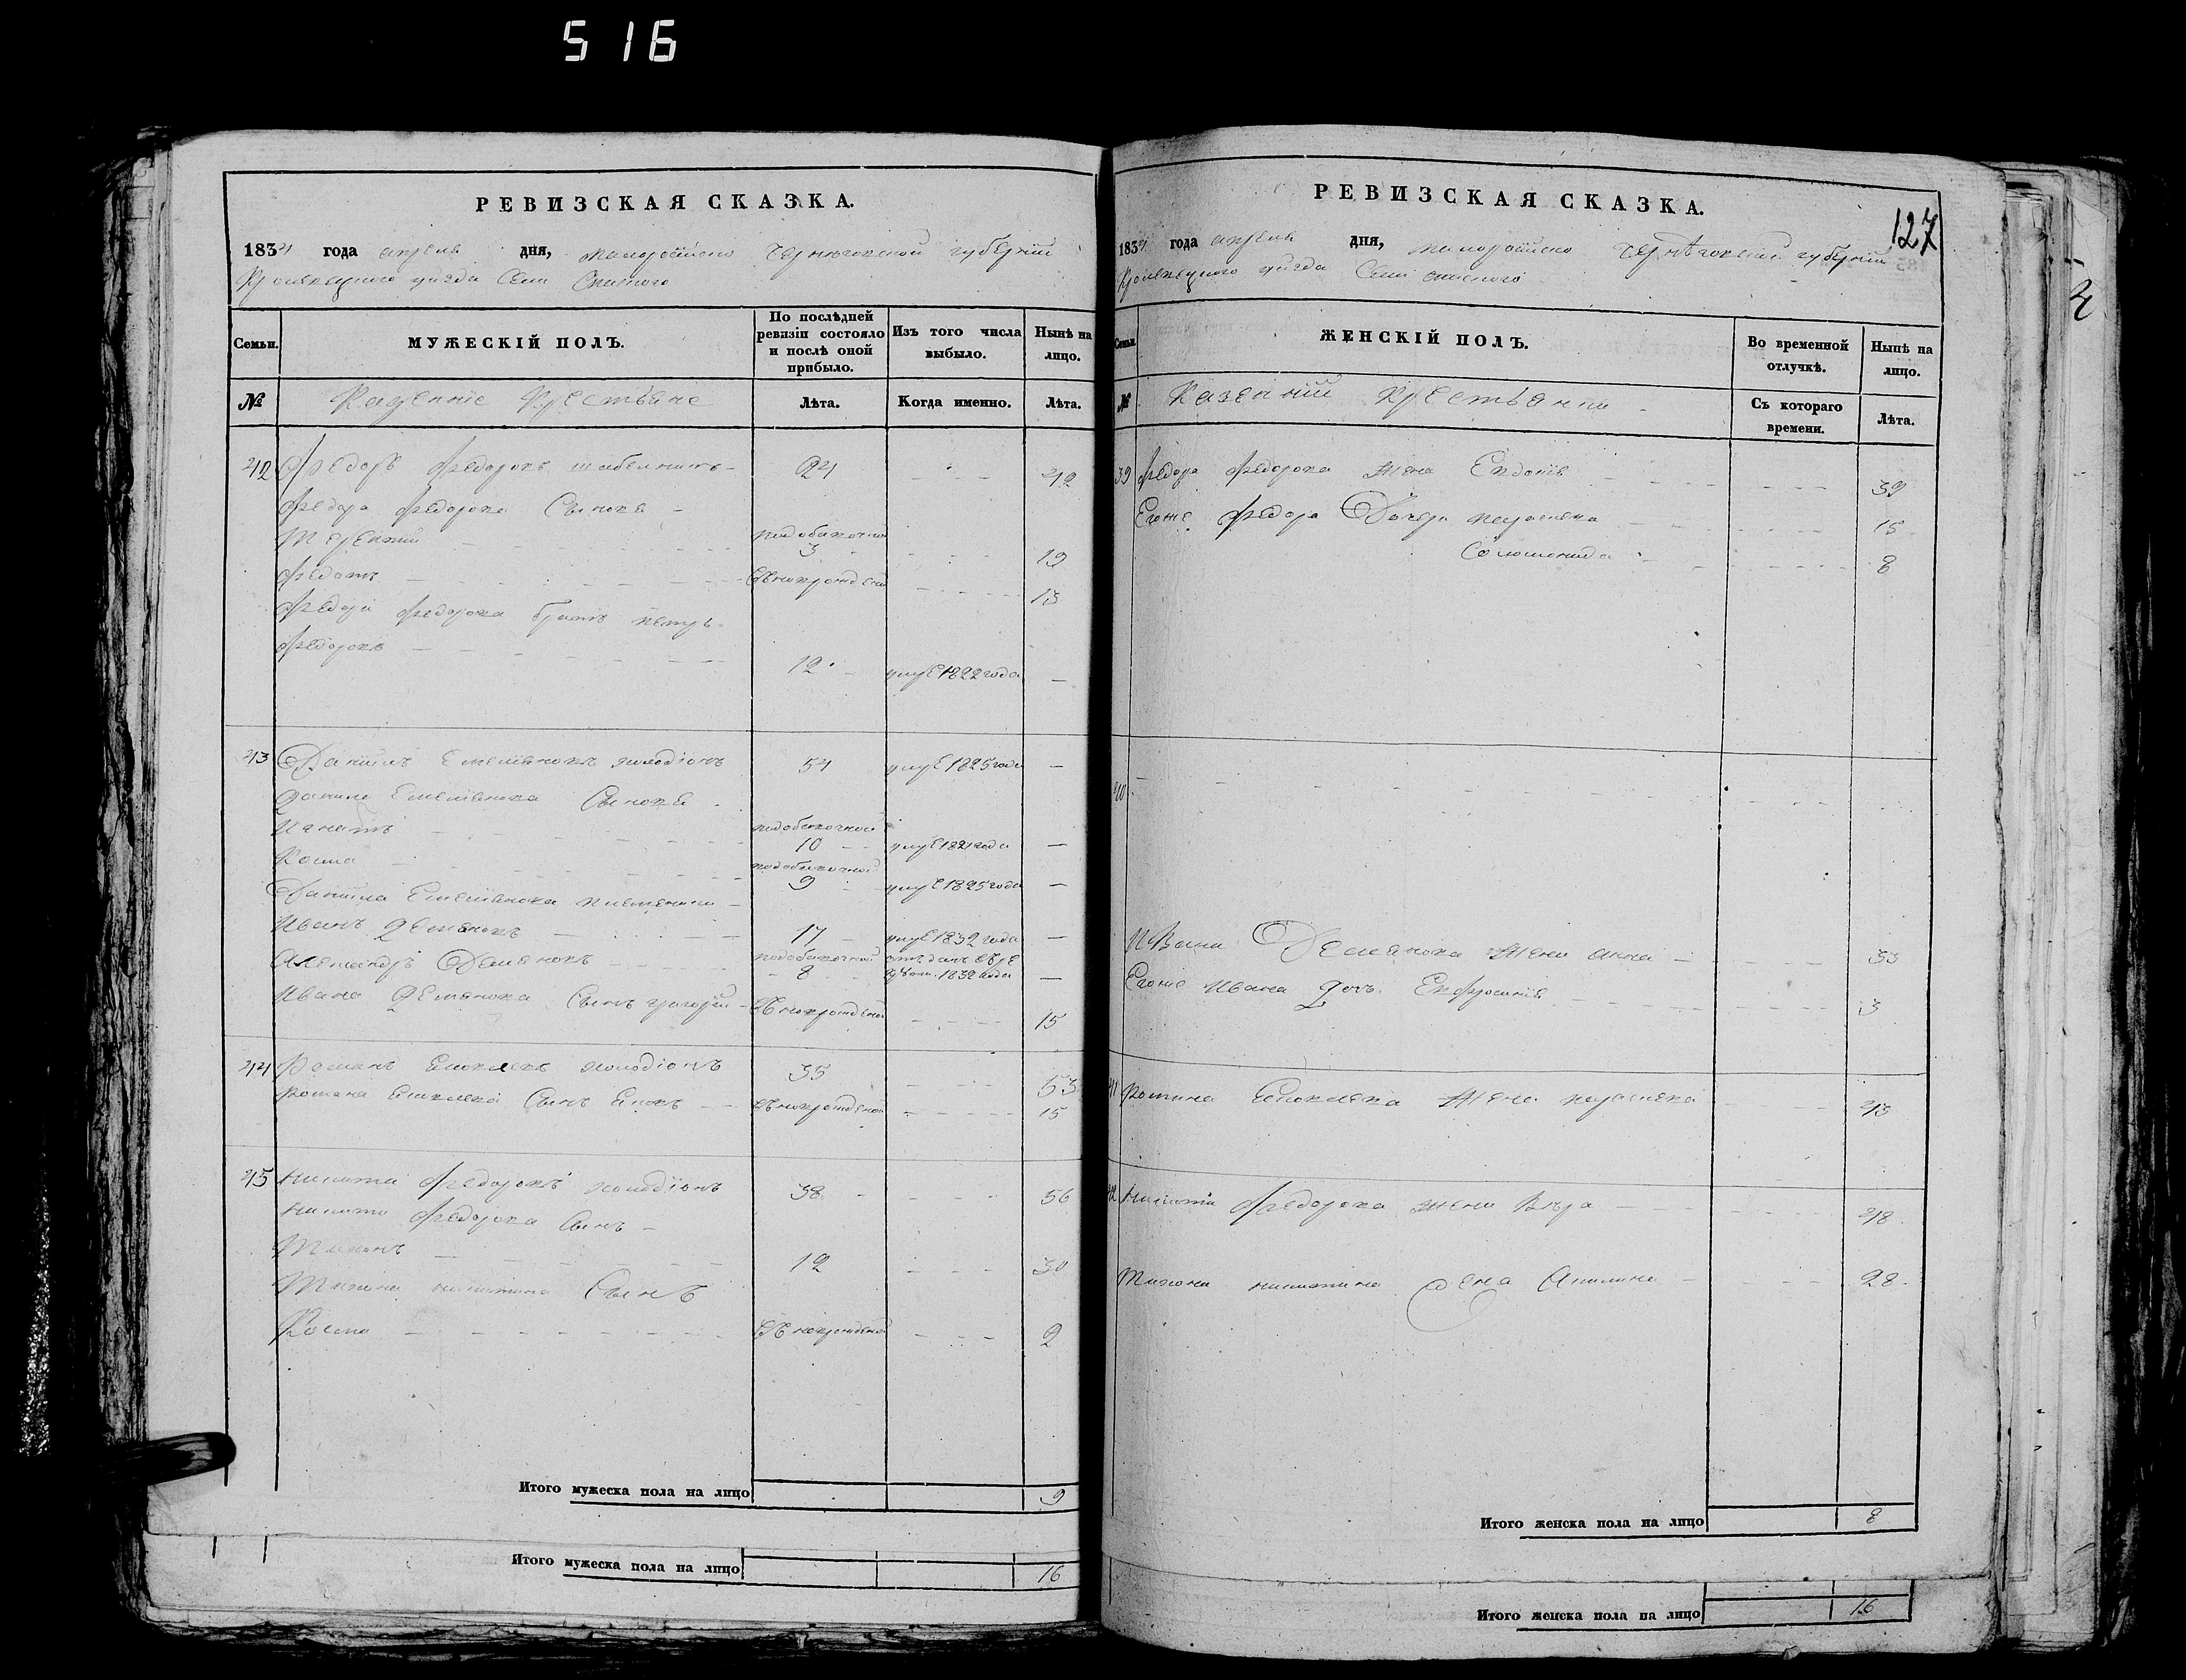 516
РЕВИЗСКАЯ СКАЗКА.
1834 года апреля дня, малоросійско Черниговской губерніи
Кролевецкого уизда Села Спаского
Семьи.
МУЖЕСКІЙ ПОЛЪ.
По послѣдней ревизіи состояло и послѣ оной прибыло.
Изъ того числа выбыло.
Нынѣ на лицо.
№
Казенніе Крестьяне
Лѣта.
Когда именно.
Лѣта.
42 Федоръ Федоровъ 24 42
Федора Федорова Сыновя
Терентий 3 19
Федотъ вновьрожденъ 13
Федора Федорова братъ Петръ
Федоровъ 12 умре 1822 года —
43 Даниилъ Емелияновъ 54 умре 1825 года —
Данила Емелиянова Сыновя
Игнатъ 10 умре 1821 года —
Козма 9 умре 1825 года —
Даниила Емелиянова племенники
Иванъ Демяновъ 17 умре 1832 года —
Александръ Демяновъ 8 отданъ въ рекруты 1832 года —
Ивана Демянова Сынъ григорий вновьрожденъ 15
44 Романъ 35 53
Романа Сынъ вновьрожденъ 15
45 Никита Федоровъ 38 56
Никити Федорова Сынъ
Тихонъ 12 30
Тихона никитина Сынъ
Козма вновьрожденъ 2
Итого мужеска пола на лицо 9
Итого мужеска пола на лицо 16
РЕВИЗСКАЯ СКАЗКА.
127
1834 года апреля дня, малоросійско Чернѣговской губерніи
Кролевецкого уизда Села Спаского
Семьи.
ЖЕНСКІЙ ПОЛЪ.
Во временной отлучкѣ.
Нынѣ на лицо.
№
Казенніи Крестьянки
Съ котораго времени.
Лѣта.
39 Федора Федорова жена Евдокія 39
Егоже Федора Дочери параскева 15
Соломонида 8
40
Ивана Демянова жена анна 33
Егоже Ивана дочь Евфросинія 3
41 Романа жена параскева 43
42 Никити Федорова жена Вѣра 48
Тихона никитина жена Акилина 28
Итого женска пола на лицо 8
Итого женска пола на лицо 16